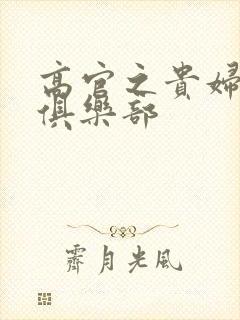 高官之貴婦
俱樂部
霽月光風